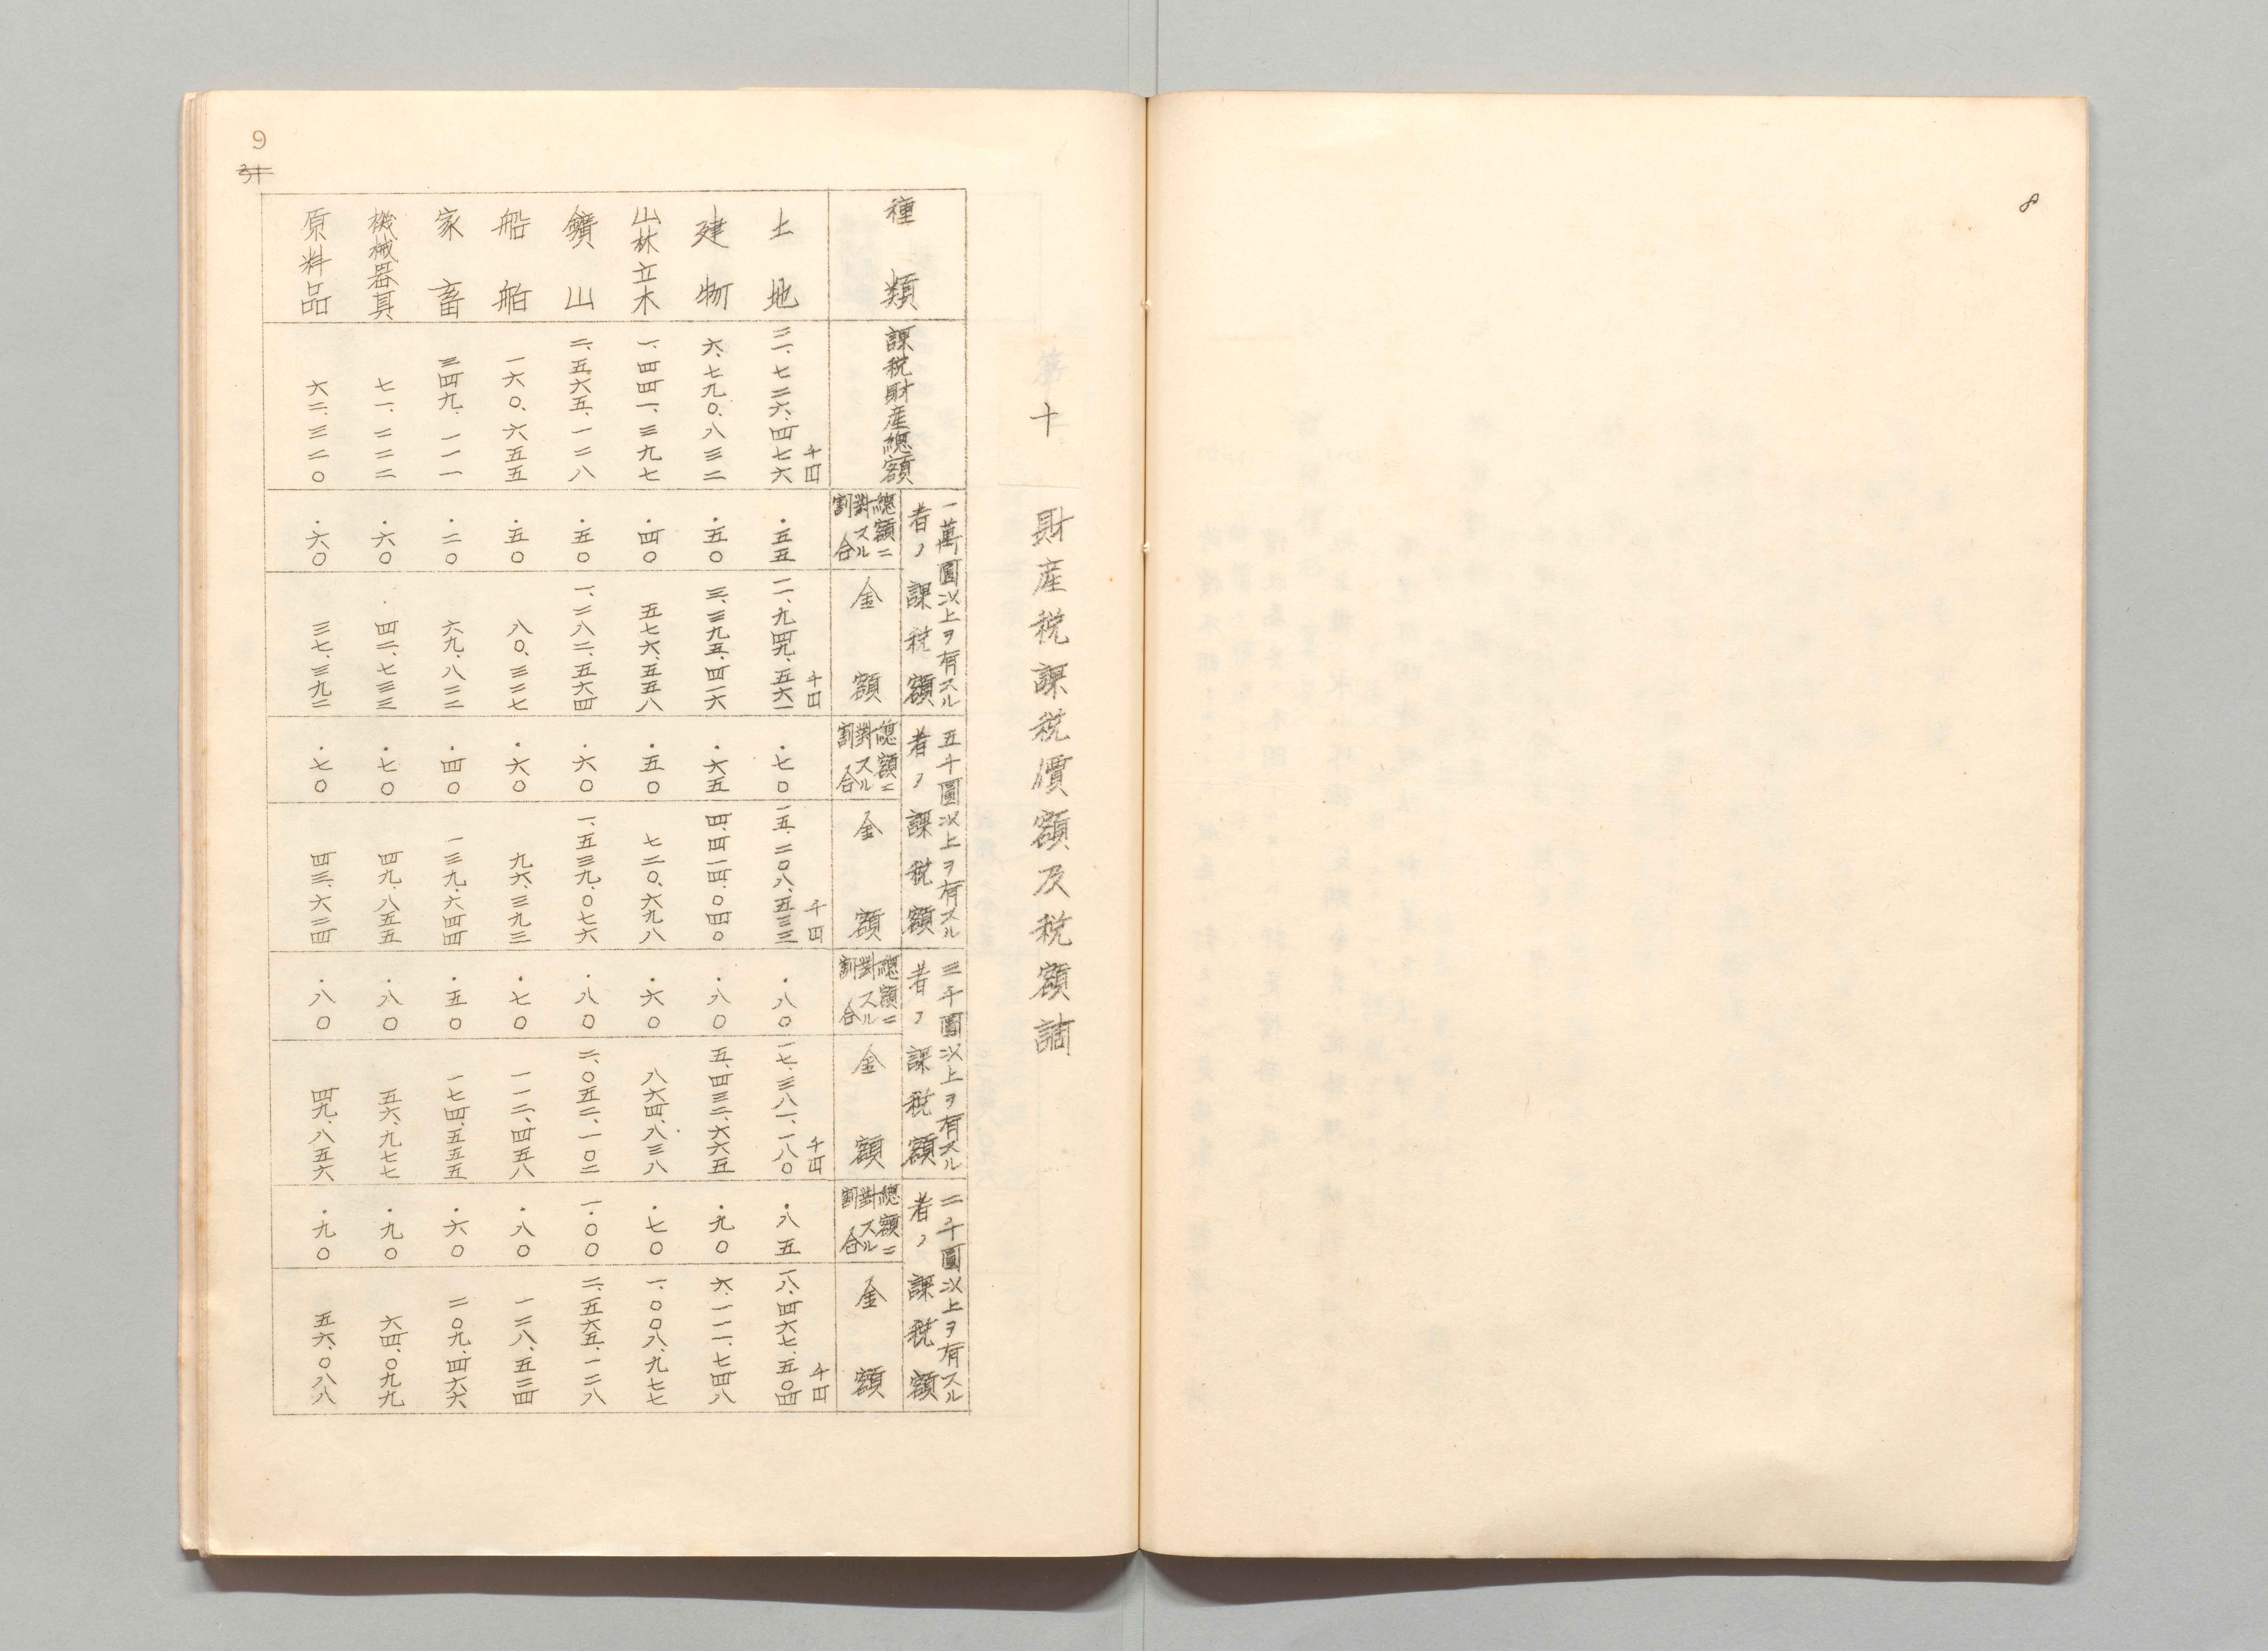 8
第十 財産税課税價額及税額調
種類 課税財産總額 一萬圓以上ヲ有スル者ノ課税額 五千圓以上ヲ有スル者ノ課税額 三千圓以上ヲ有スル者ノ課税額 二千圓以上ヲ有スル者ノ課税額
總額ニ對スル割合 金額 總額ニ對スル割合 金額 總額ニ對スル割合 金額 總額ニ對スル割合 金額
千円 千円 千円 千円 千円
土地 二一、七二六、四七六 ・五五 一一、九四九、五六一 ・七〇 一五、二〇八、五三三 ・八〇 一七、三八一、一八〇 ・八五 一八、四六七、五〇四
建物 六、七九〇、八三二 ・五〇 三、三九五、四一六 ・六五 四、四一四、〇四〇 ・八〇 五、四三二、六六五 ・九〇 六、一一一、七四八
山林立木 一、四四一、三九七 ・四〇 五七六、五五八 ・五〇 七二〇、六九八 ・六〇 八六四、八三八 ・七〇 一、〇〇八、九七七
鑛山 二、五六五、一二八 ・五〇 一、二八二、五六四 ・六〇 一、五三九、〇七六 ・八〇 二、〇五二、一〇二 一・〇〇 二、五六五、一二八
船舶 一六〇、六五五 ・五〇 八〇、三二七 ・六〇 九六、三九三 ・七〇 一一二、四五八 ・八〇 一二八、五二四
家畜 三四九、一一一 ・二〇 六九、八二二 ・四〇 一三九、六四四 ・五〇 一七四、五五五 ・六〇 二〇九、四六六
機械器具 七一、二二二 ・六〇 四二、七三三 ・七〇 四九、八五五 ・八〇 五六、九七七 ・九〇 六四、〇九九
原料品 六二、三二〇 ・六〇 三七、三九二 ・七〇 四三、六二四 ・八〇 四九、八五六 ・九〇 五六、〇八八
9